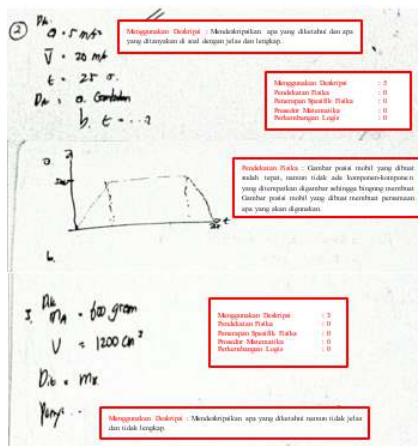 ② Dik
a = 5 m/s²
Menggunakan Deskripsi : Mendeskripsikan apa yang diketahui dan apa
yang ditanyakan di soal dengan jelas dan lengkap.
V = 20 m/s
t = 25 s.
Menggunakan Deskripsi : 5
Pendekatan Fisika : 0
Penerapan Spesifik Fisika : 0
Prosedur Matematika : 0
Perkembangan Logis : 0
Dit : a. Gambarkan
b. t = ...?
a.
Pendekatan Fisika : Gambar posisi mobil yang dibuat
sudah tepat, namun tidak ada komponen-komponen
yang ditempatkan digambar sehingga bingung membuat
Gambar posisi mobil yang dibuat membuat persamaan
apa yang akan digunakan.
t
25
b.
3. Dik
mA = 600 gram
V = 1200 cm³
Menggunakan Deskripsi : 3
Pendekatan Fisika : 0
Penerapan Spesifik Fisika : 0
Prosedur Matematika : 0
Perkembangan Logis : 0
Dit = mx
Menggunakan Deskripsi : Mendeskripsikan apa yang diketahui namun tidak jelas
dan tidak lengkap.